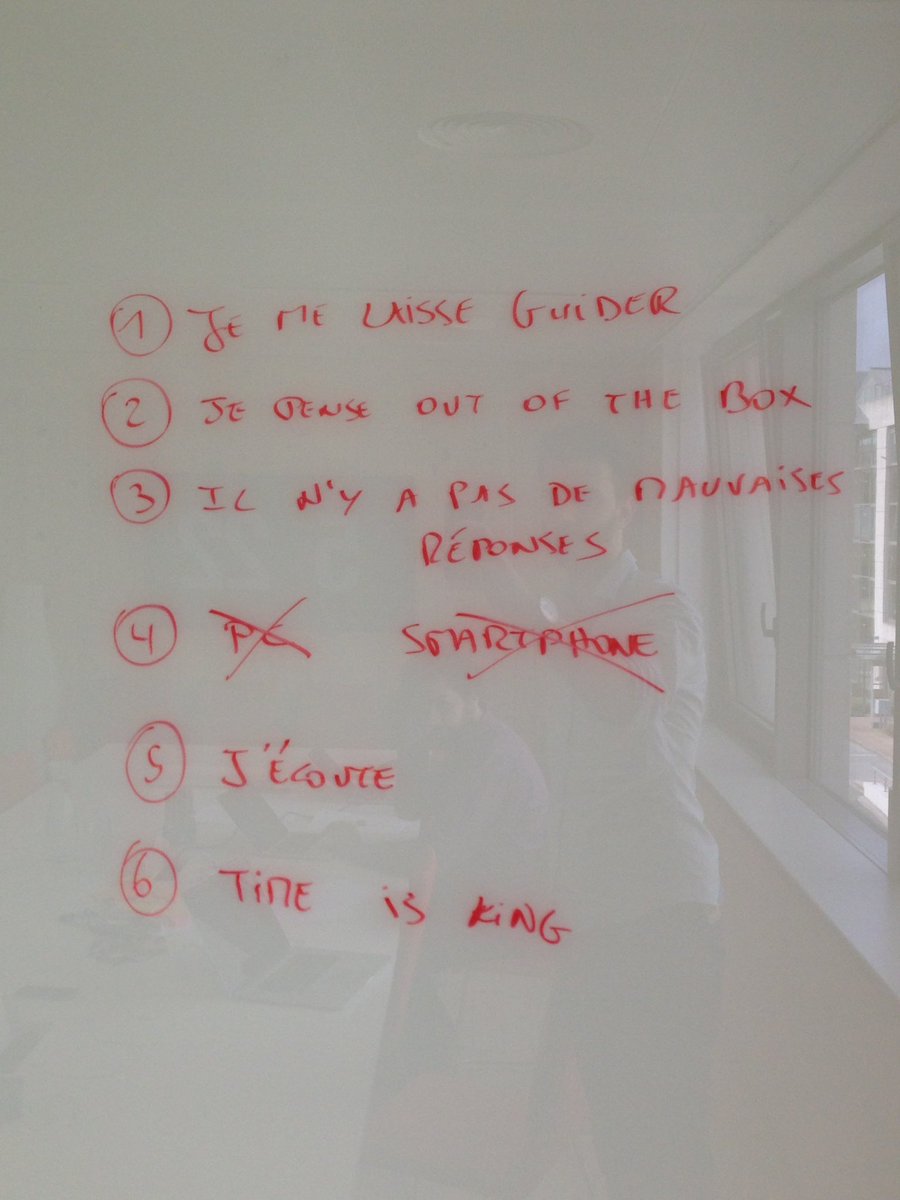 1 JE ME LAISSE GUIDER
2 JE PENSE OUT OF THE BOX
3 IL N'Y A PAS DE MAUVAISES
RÉPONSES
4 PC SMARTPHONE
5 J'ÉCOUTE
6 TIME IS KING